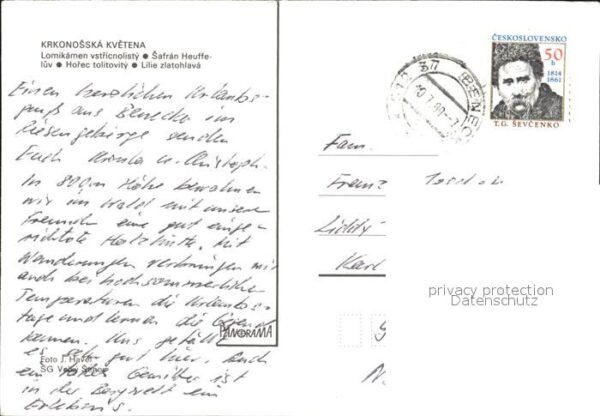 KRKONOŠSKÁ KVĚTENA
Lomikámen vstřícnolistý ● Šafrán Heuffe-
lův ● Hořec tolitovitý ● Lilie zlatohlavá
Einen herzlichen Urlaubs-
gruß aus Benecko im
Riesengebirge senden
Euch u. Christoph.
In 800m Höhe bewohnen
wir im Wald mit unseren
Freunden eine gut einge-
richtete Holzhütte. Mit
Wanderungen verbringen wir
auch bei hochsommerlichen
Temperaturen die Urlaubs-
tage und lernen die Gegend
kennen. Uns gefällt
es sehr gut hier. Auch
ein Gewitter ist
in der Bergwelt ein
Erlebnis.
Foto J. Havel
SG
PANORAMA
ČESKOSLOVENSKO
50
h
1814
1861
T.G. ŠEVČENKO
37
BENECKO
Fam.
Franz
privacy protection
Datenschutz